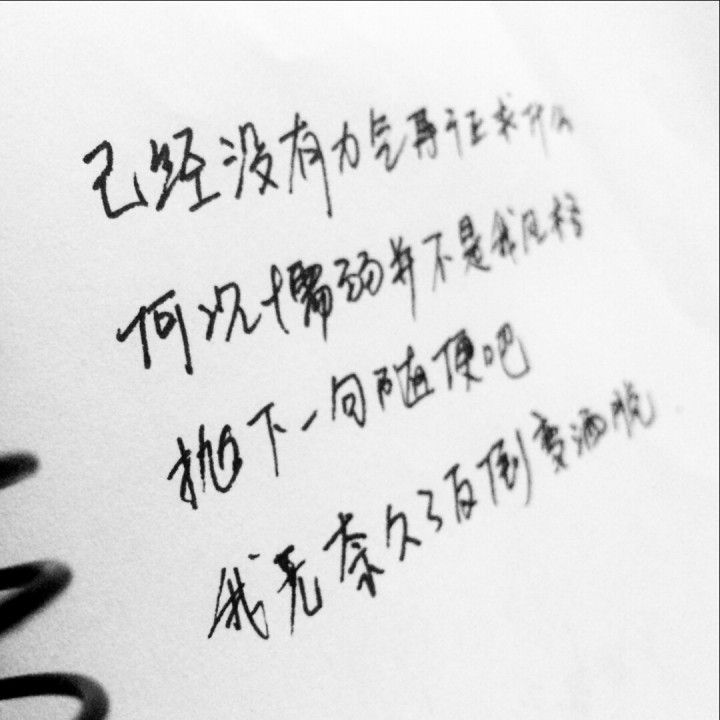 已经没有力气再证求什么
何况懦弱并不是我风格
抛下一句随便吧
我无奈久了反倒变洒脱